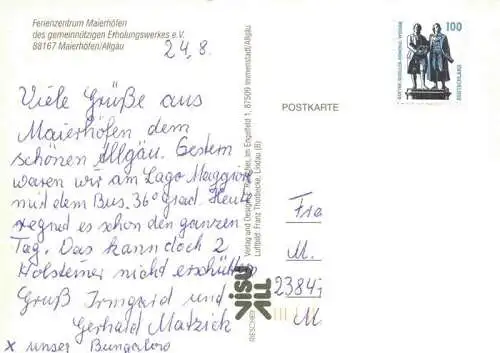 Ferienzentrum Maierhöfen
des gemeinnützigen Erholungswerkes e.V.
88167 Maierhöfen/Allgäu
24.8.
Viele Grüße aus
Maierhöfen dem
schönen Allgäu. Gestern
waren wir am Lago Maggiore
mit dem Bus. 36° grad. Heute
regnet es schon den ganzen
Tag. Das kann doch 2
Holsteiner nicht erschüttern
Gruß Irmgard und
Gerhard Matzick
x unser Bungalow
Verlag und Design: im Engelfeld 1, 87509 Immenstadt/Allgäu
Luftbild: Franz Thorbecke, Lindau (B)
RIESCHER
POSTKARTE
100
DEUTSCHLAND
GOETHE-SCHILLER-DENKMAL WEIMAR
Fra
M.
2384
M